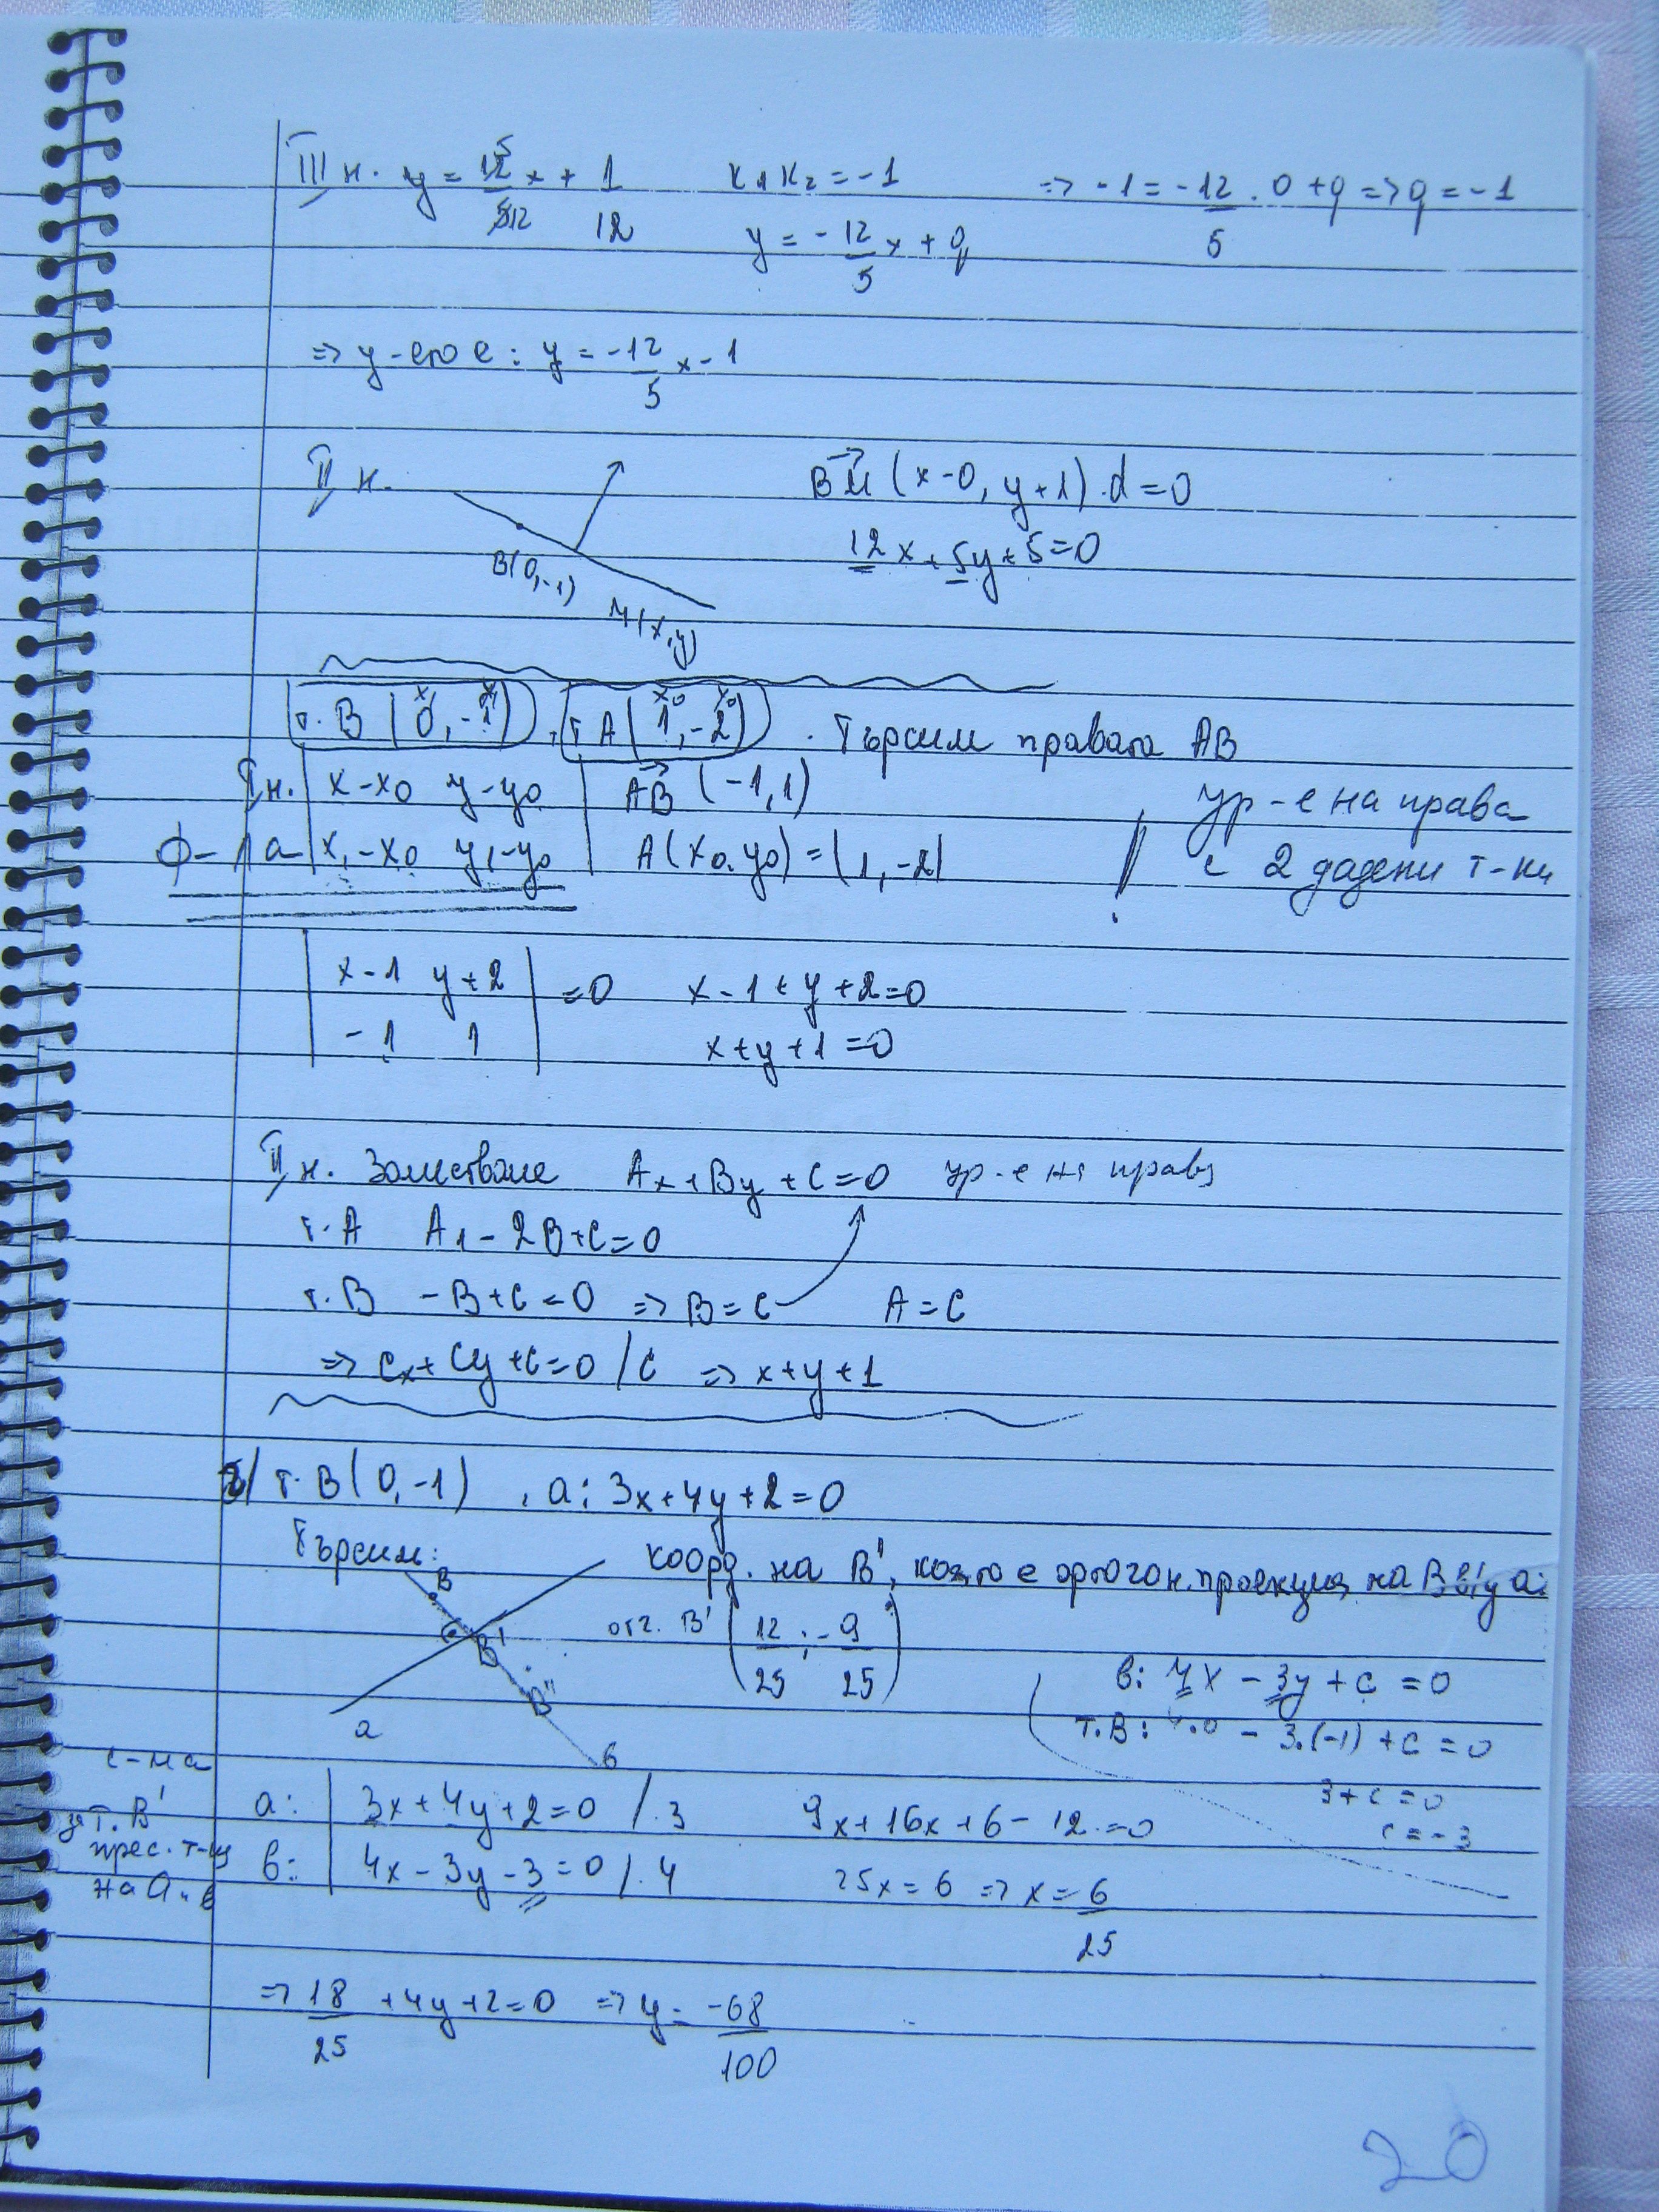 III н. y = 5/12 x + 1/12   k₁k₂ = -1   => -1 = -12/5 . 0 + q => q = -1
y = -12/5 x + q
=> у-ето е: y = -12/5 x - 1
II н.   BM→ (x-0, y+1) . d = 0
12x + 5y + 5 = 0
B(0,-1)
M(x,y)
т. B (0, -1), т A (1, -2). Търсим правата AB
I н. | x-x₀ y-y₀ | AB→ (-1, 1)   ур-е на права
ф-ла | x₁-x₀ y₁-y₀ | A(x₀,y₀) = (1, -2)   ! с 2 дадени т-ки
| x-1 y+2 | = 0   x-1+y+2=0
| -1 1 |   x+y+1=0
II н. Заместваме Ax+By+C=0 ур-е на права
т. A   A1 - 2B+C=0
т. B   -B+C=0 => B=C   A=C
=> Cx+Cy+C=0 /C => x+y+1
т. B (0, -1), a: 3x+4y+2=0
Търсим: коорд. на B', която е ортогон. проекция на B в/у a:
B
отг. B' (12/25 ; -9/25)
B'
в: 4x - 3y + c = 0
B''
a
т. B: 4.0 - 3.(-1) + c = 0
в
с-ма
3+c=0
a: | 3x+4y+2=0 /.3   9x+16x+6-12=0
за т. B'
c=-3
прес. т-ка
в: | 4x-3y-3=0 /.4   25x=6 => x=6/25
на a и в
=> 18/25 + 4y+2=0 => y = -68/100
20